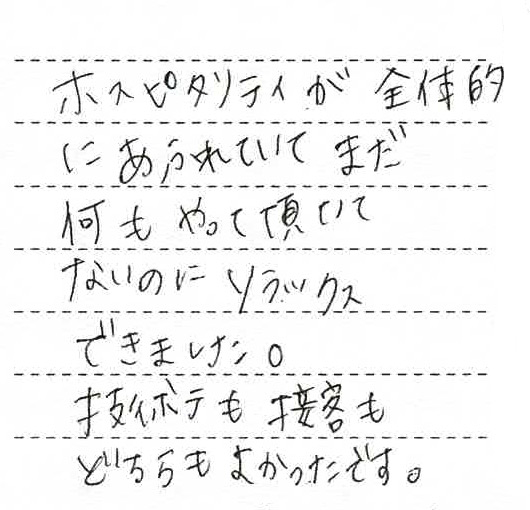 ホスピタリティが 全体的
にあふれていて まだ
何も やって頂いて
ないのに リラックス
できました。
技術も 接客も
どちらも よかったです。